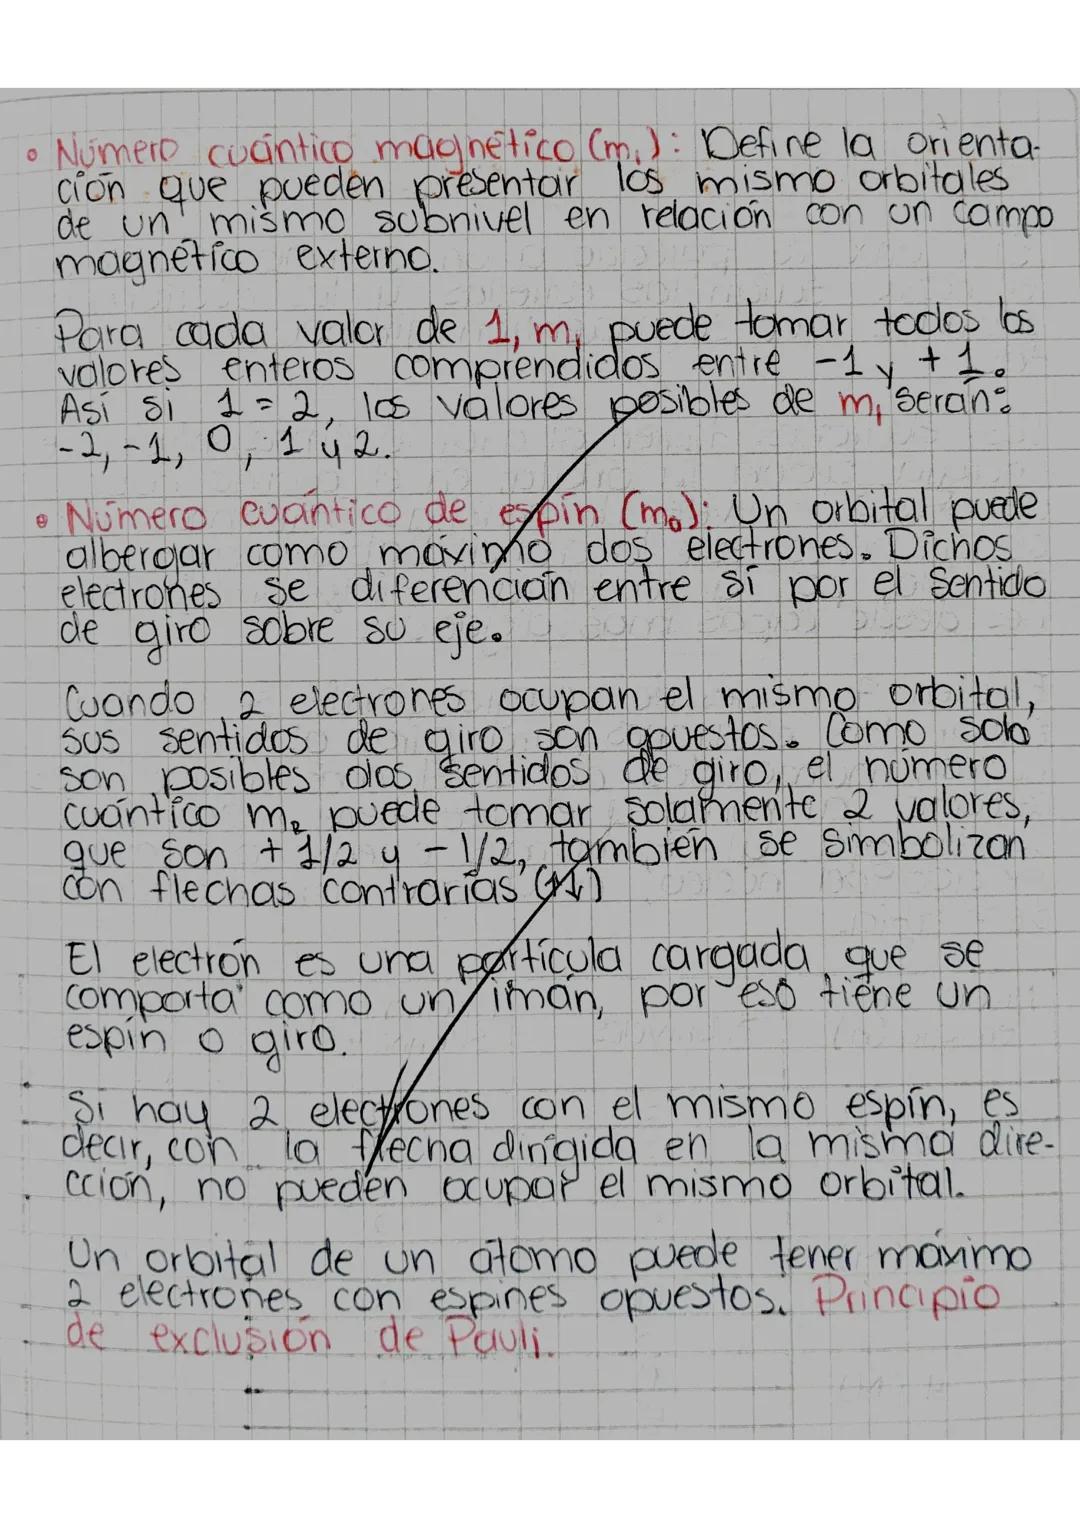 • Número cuántico magnético (m₁): Define la orienta-
ción que pueden presentar los mismo orbitales
de un mismo subnivel en relación con un campo
magnético externo.
Para cada valor de 1, m₁ puede tomar todos los
valores enteros comprendidos entre -1 y +1.
Así si 1 = 2, los valores posibles de m₁ serán:
-2, -1, 0, 1 y 2.
• Número cuántico de espín (mₒ): Un orbital puede
albergar como máximo dos electrones. Dichos
electrones se diferencian entre sí por el sentido
de giro sobre su eje.
Cuando 2 electrones ocupan el mismo orbital,
sus sentidos de giro son opuestos. Como solo
son posibles dos sentidos de giro, el número
cuántico m₂ puede tomar solamente 2 valores,
que son +1/2 y -1/2, también se simbolizan
con flechas contrarias (↑↓)
El electrón es una partícula cargada que se
comporta como un imán, por eso tiene un
espín o giro.
Si hay 2 electrones con el mismo espín, es
decir, con la flecha dirigida en la misma dire-
cción, no pueden ocupar el mismo orbital.
Un orbital de un átomo puede tener máximo
2 electrones con espines opuestos. Principio
de exclusión de Pauli.